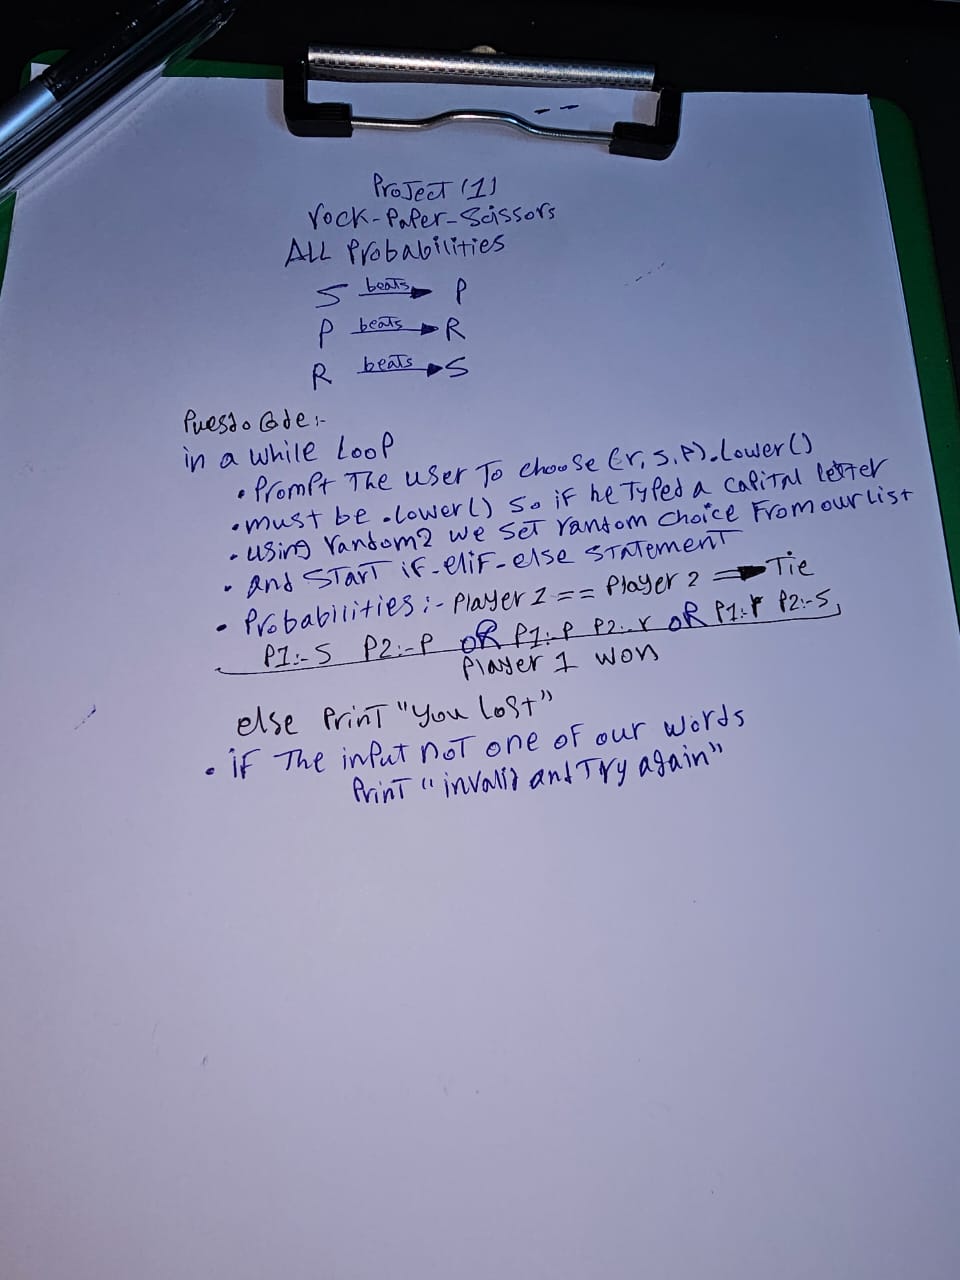 ProJect (1)
rock-PaPer-Scissors
ALL Probabilities
S beats P
P beats R
R beats S
Puesdo Code :-
in a while LooP
• PromPt The user To choose (r, s, P).Lower()
• must be .Lower() So if he TyPed a CaPiTal letter
• using random2 we Set random choice From our List
• and START if-elif-else STATemenT
• Probabilities :- Player 1 == Player 2 Tie
P1:- S P2:-P OR P1:-P P2:-r OR P1:-r P2:-S,
Player 1 won
else PrinT "You LosT"
• if The inPut noT one of our words
PrinT "invalid and Try again"